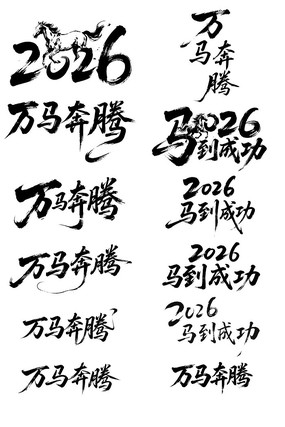 2026
万马奔腾
万马奔腾
万马奔腾
万马奔腾
万马奔腾
万
马奔
腾
2026
马到成功
2026
马到成功
2026
马到成功
2026
马到成功
万马奔腾